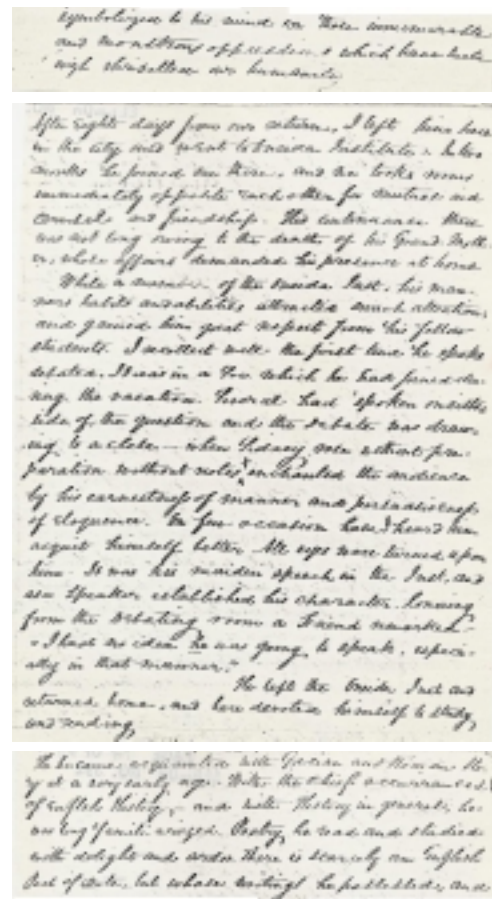 symbolized to his mind on those innumerable
and monstrous oppression & which have
nigh our humanity
After eight days from our return, I left him here
in the city and went to Oneida Institute. In two
months he joined me there, and we took rooms
immediately opposite each other for mutual aid
counsel and friendship. His continuance there
was not long owing to the death of his Grand Moth
er, whose affairs demanded his presence at home
While a member of the Oneida Inst. his man-
ners habits and abilities attracted much attention,
and gained him great respect from his fellow
students. I recollect well the first time he spoke
debated. It was in a Soc which he had joined du-
ring the vacation. Several had spoken on either
side of the question and the debate was draw-
ing to a close — when Sidney rose without pre-
paration without notes enchanted the audience
by his earnestness of manner and persuasiveness
of eloquence. On few occasion have I heard him
acquit himself better. All eyes were turned upon
him. It was his maiden speech in the Inst. and
as a Speaker established his character. Coming
from the debating room a friend remarked
"I had no idea he was going to speak, especi-
ally in that manner."
He left the Oneida Inst and
returned home, and here devoted himself to study,
and reading,
He became acquainted with Grecian and Roman His-
ry at a very early age. With the chief occurrences
of English History, and with History in general, he
was long familiarized. Poetry, he read and studied
with delight and ardor there is scarcely an English
Poet of note, but whose writings he possessed, and